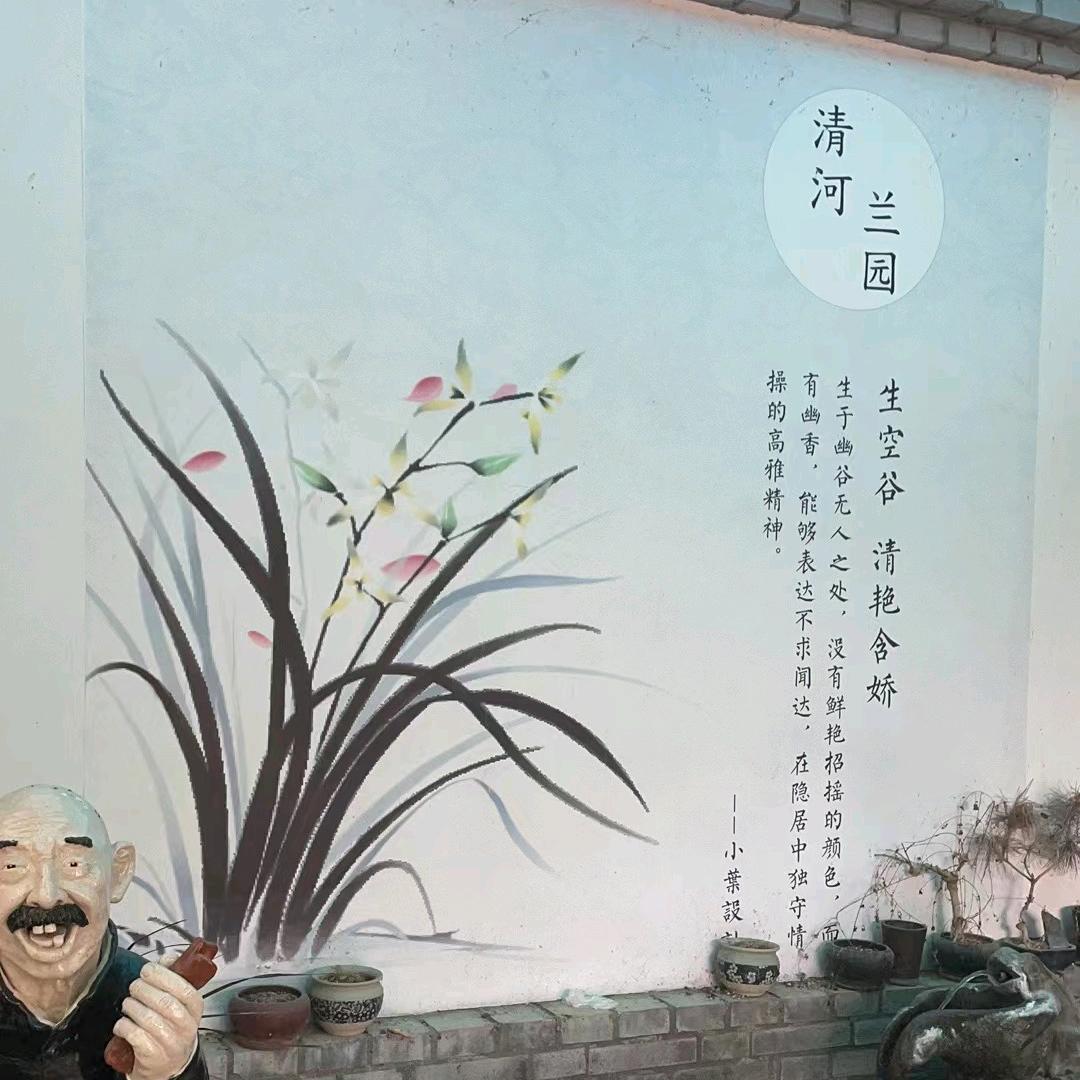 清河
兰园
生空谷 清艳含娇
生于幽谷无人之处，没有鲜艳招摇的颜色，而
有幽香，能够表达不求闻达，在隐居中独守情
操的高雅精神。
——小葉設